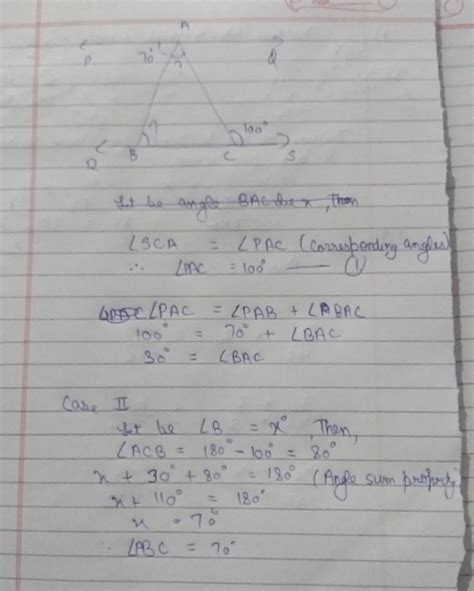 A
P 70° ? Q
? 100°
R B C S
Let be angle BAC be x, Then
∠SCA = ∠PAC (Corresponding angles)
∴ ∠PAC = 100° —— ①
∠PAC = ∠PAB + ∠BAC
100° = 70° + ∠BAC
30° = ∠BAC
Case II
Let be ∠B = x°, Then,
∠ACB = 180° - 100° = 80°
x + 30° + 80° = 180° (Angle sum property)
x + 110° = 180°
x = 70°
∠ABC = 70°